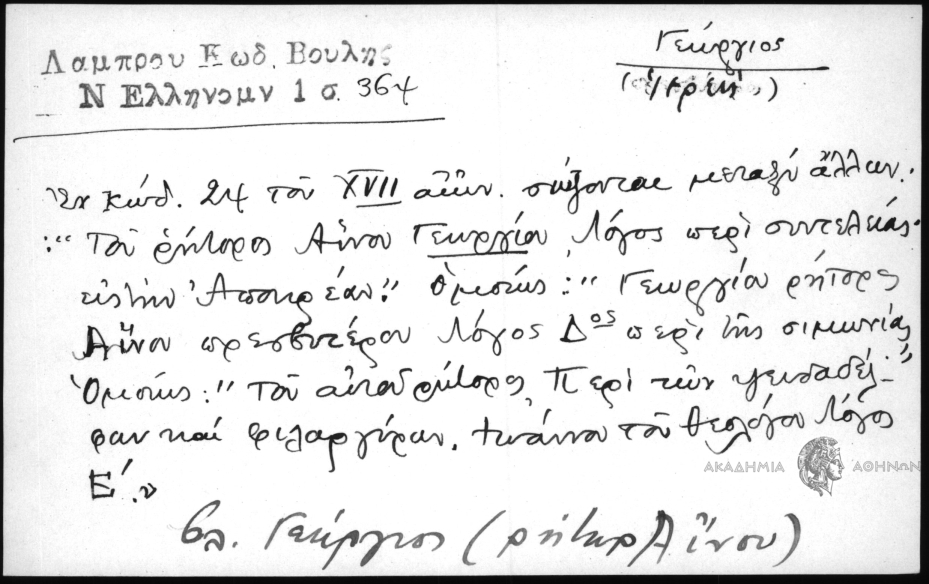 Λαμπρου Κωδ. Βουλης
Ν Ελληνομν 1 σ. 364
Γεώργιος
Ἐκ κώδ. 24 τοῦ XVII αἰῶν. σώζονται μεταξὺ ἄλλων:
"Τοῦ ῥήτορος Αἴνου Γεωργίου Λόγος περὶ συντελείας
εἰς τὴν Ἀποκρέαν." Ὁμοίως: "Γεωργίου ρήτορος
Αἴνου πρεσβυτέρου Λόγος Δος περὶ τῆς σιμωνίας"
Ὁμοίως: "Τοῦ αὐτοῦ ρήτορος, Περὶ τῶν ψευδαδέλ-
φων καὶ φιλαργύρων, Ἰωάννου τοῦ Θεολόγου Λόγος
Ε΄."
ΑΚΑΔΗΜΙΑ ΑΘΗΝΩΝ
βλ. Γεώργιος (ρήτωρ Αἴνου)